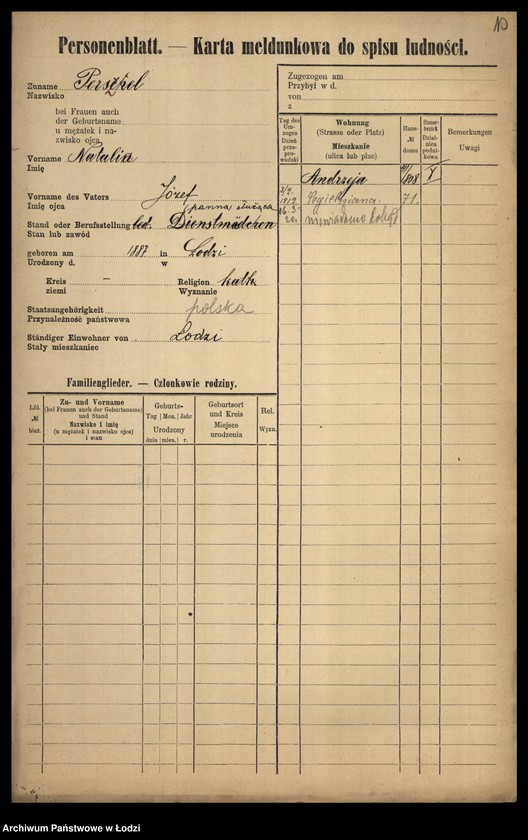 10
Personenblatt. — Karta meldunkowa do spisu ludności.
Zuname
Nazwisko
bei Frauen auch
der Geburtsname
u mężatek i na-
zwisko ojca
Vorname Natalia
Imię
Vorname des Vaters Józef
Imię ojca panna służąca
Stand oder Berufsstellung led. Dienstmädchen
Stan lub zawód
geboren am 1887 in Lodzi
Urodzony d. w
Kreis — Religion kath.
ziemi Wyznanie
Staatsangehörigkeit polska
Przynależność państwowa
Ständiger Einwohner von Lodzi
Stały mieszkaniec
Familienglieder. — Członkowie rodziny.
Lfd. № bież.
Zu- und Vorname
(bei Frauen auch der Geburtsname)
und Stand
Nazwisko i imię
(u mężatek i nazwisko ojca)
i stan
Geburts-
Tag | Mon. | Jahr
Urodzony
dnia | mies. | r.
Geburtsort
und Kreis
Miejsce
urodzenia
Rel.
Wyzn.
Zugezogen am
Przybył w d.
von
z
Tag des
Um-
zuges
Dzień
prze-
prowadzki
Wohnung
(Strasse oder Platz)
Mieszkanie
(ulica lub plac)
Haus-
№
domu
Steuer-
bezirk
Dziel-
nica
podat-
kowa
Bemerkungen
Uwagi
Andrzeja V
Cegielniana 71.
niewiadomo
Archiwum Państwowe w Łodzi